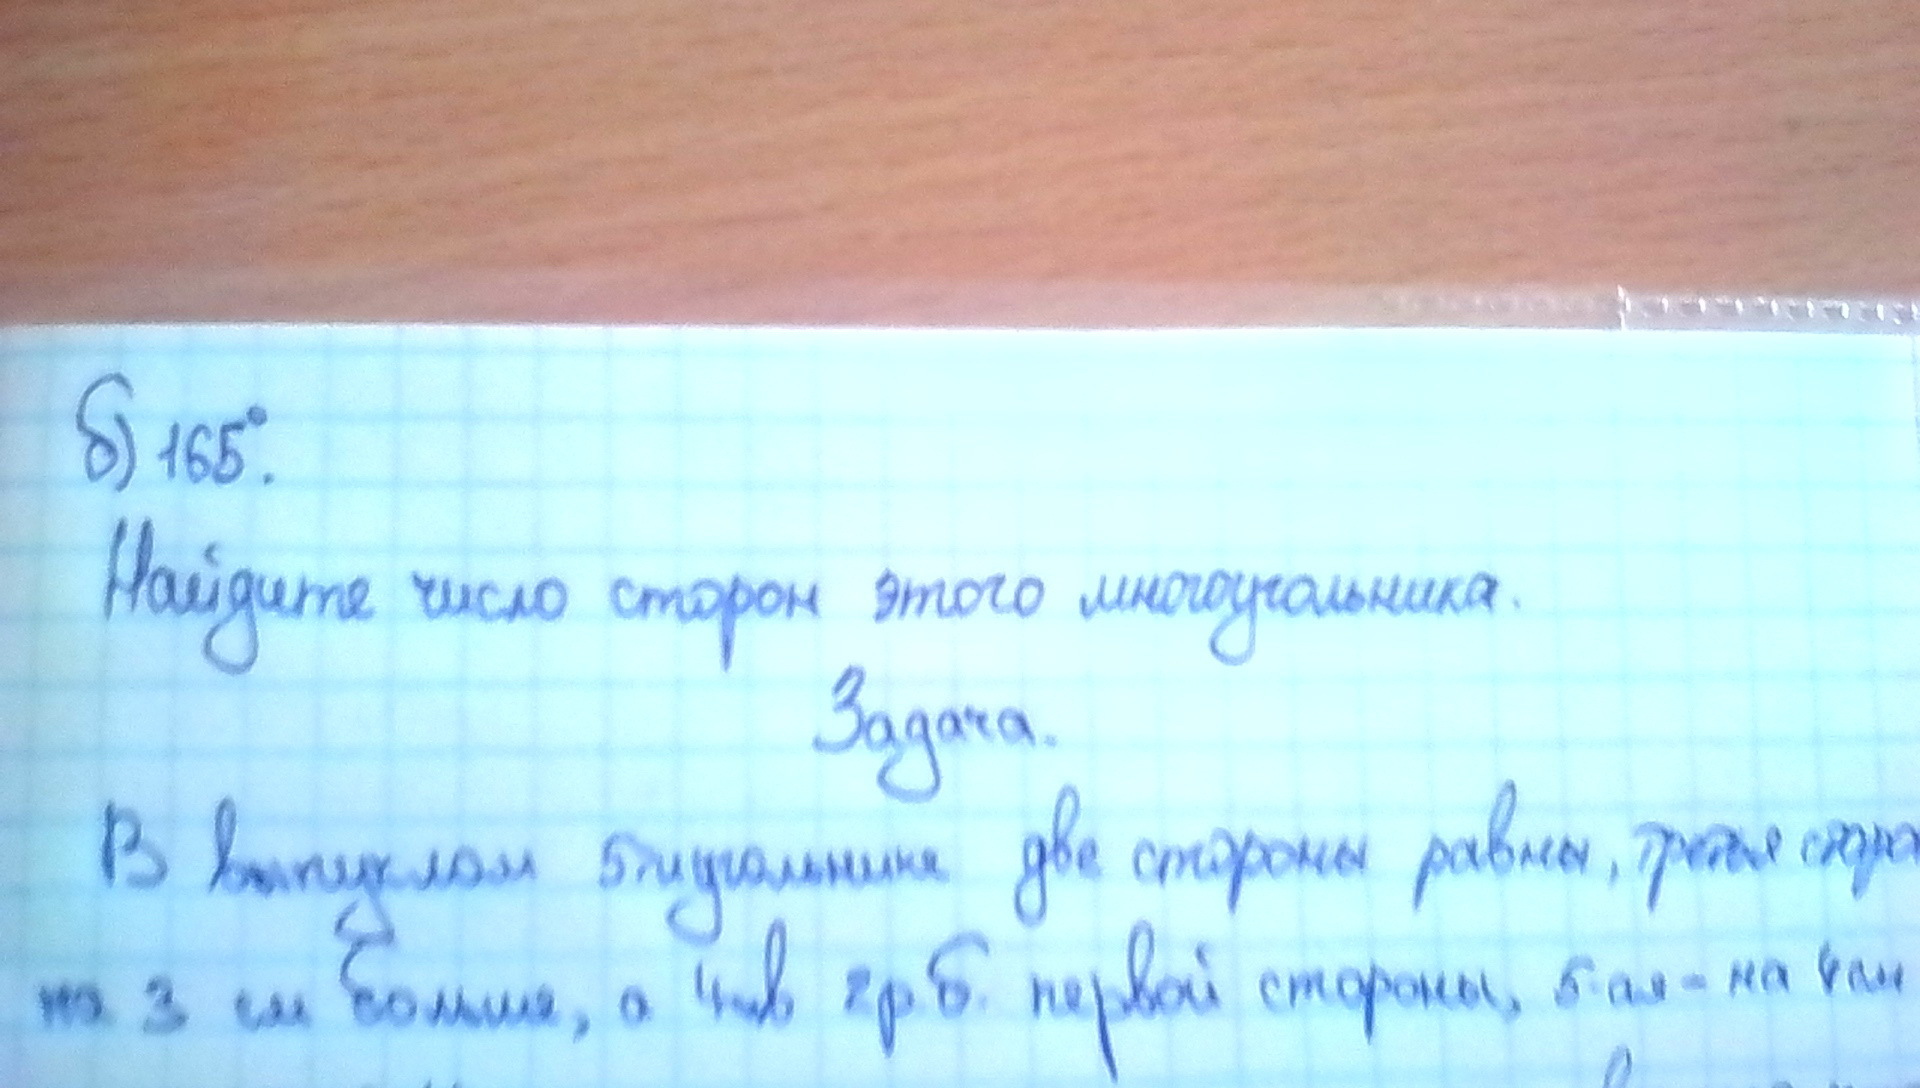 б) 165°.
Найдите число сторон этого многоугольника.
Задача.
В выпуклом 5тиугольнике две стороны равны, третья сторо
на 3 см больше, а 4-ая в 2 р. б. первой стороны, 5-ая - на 4 см